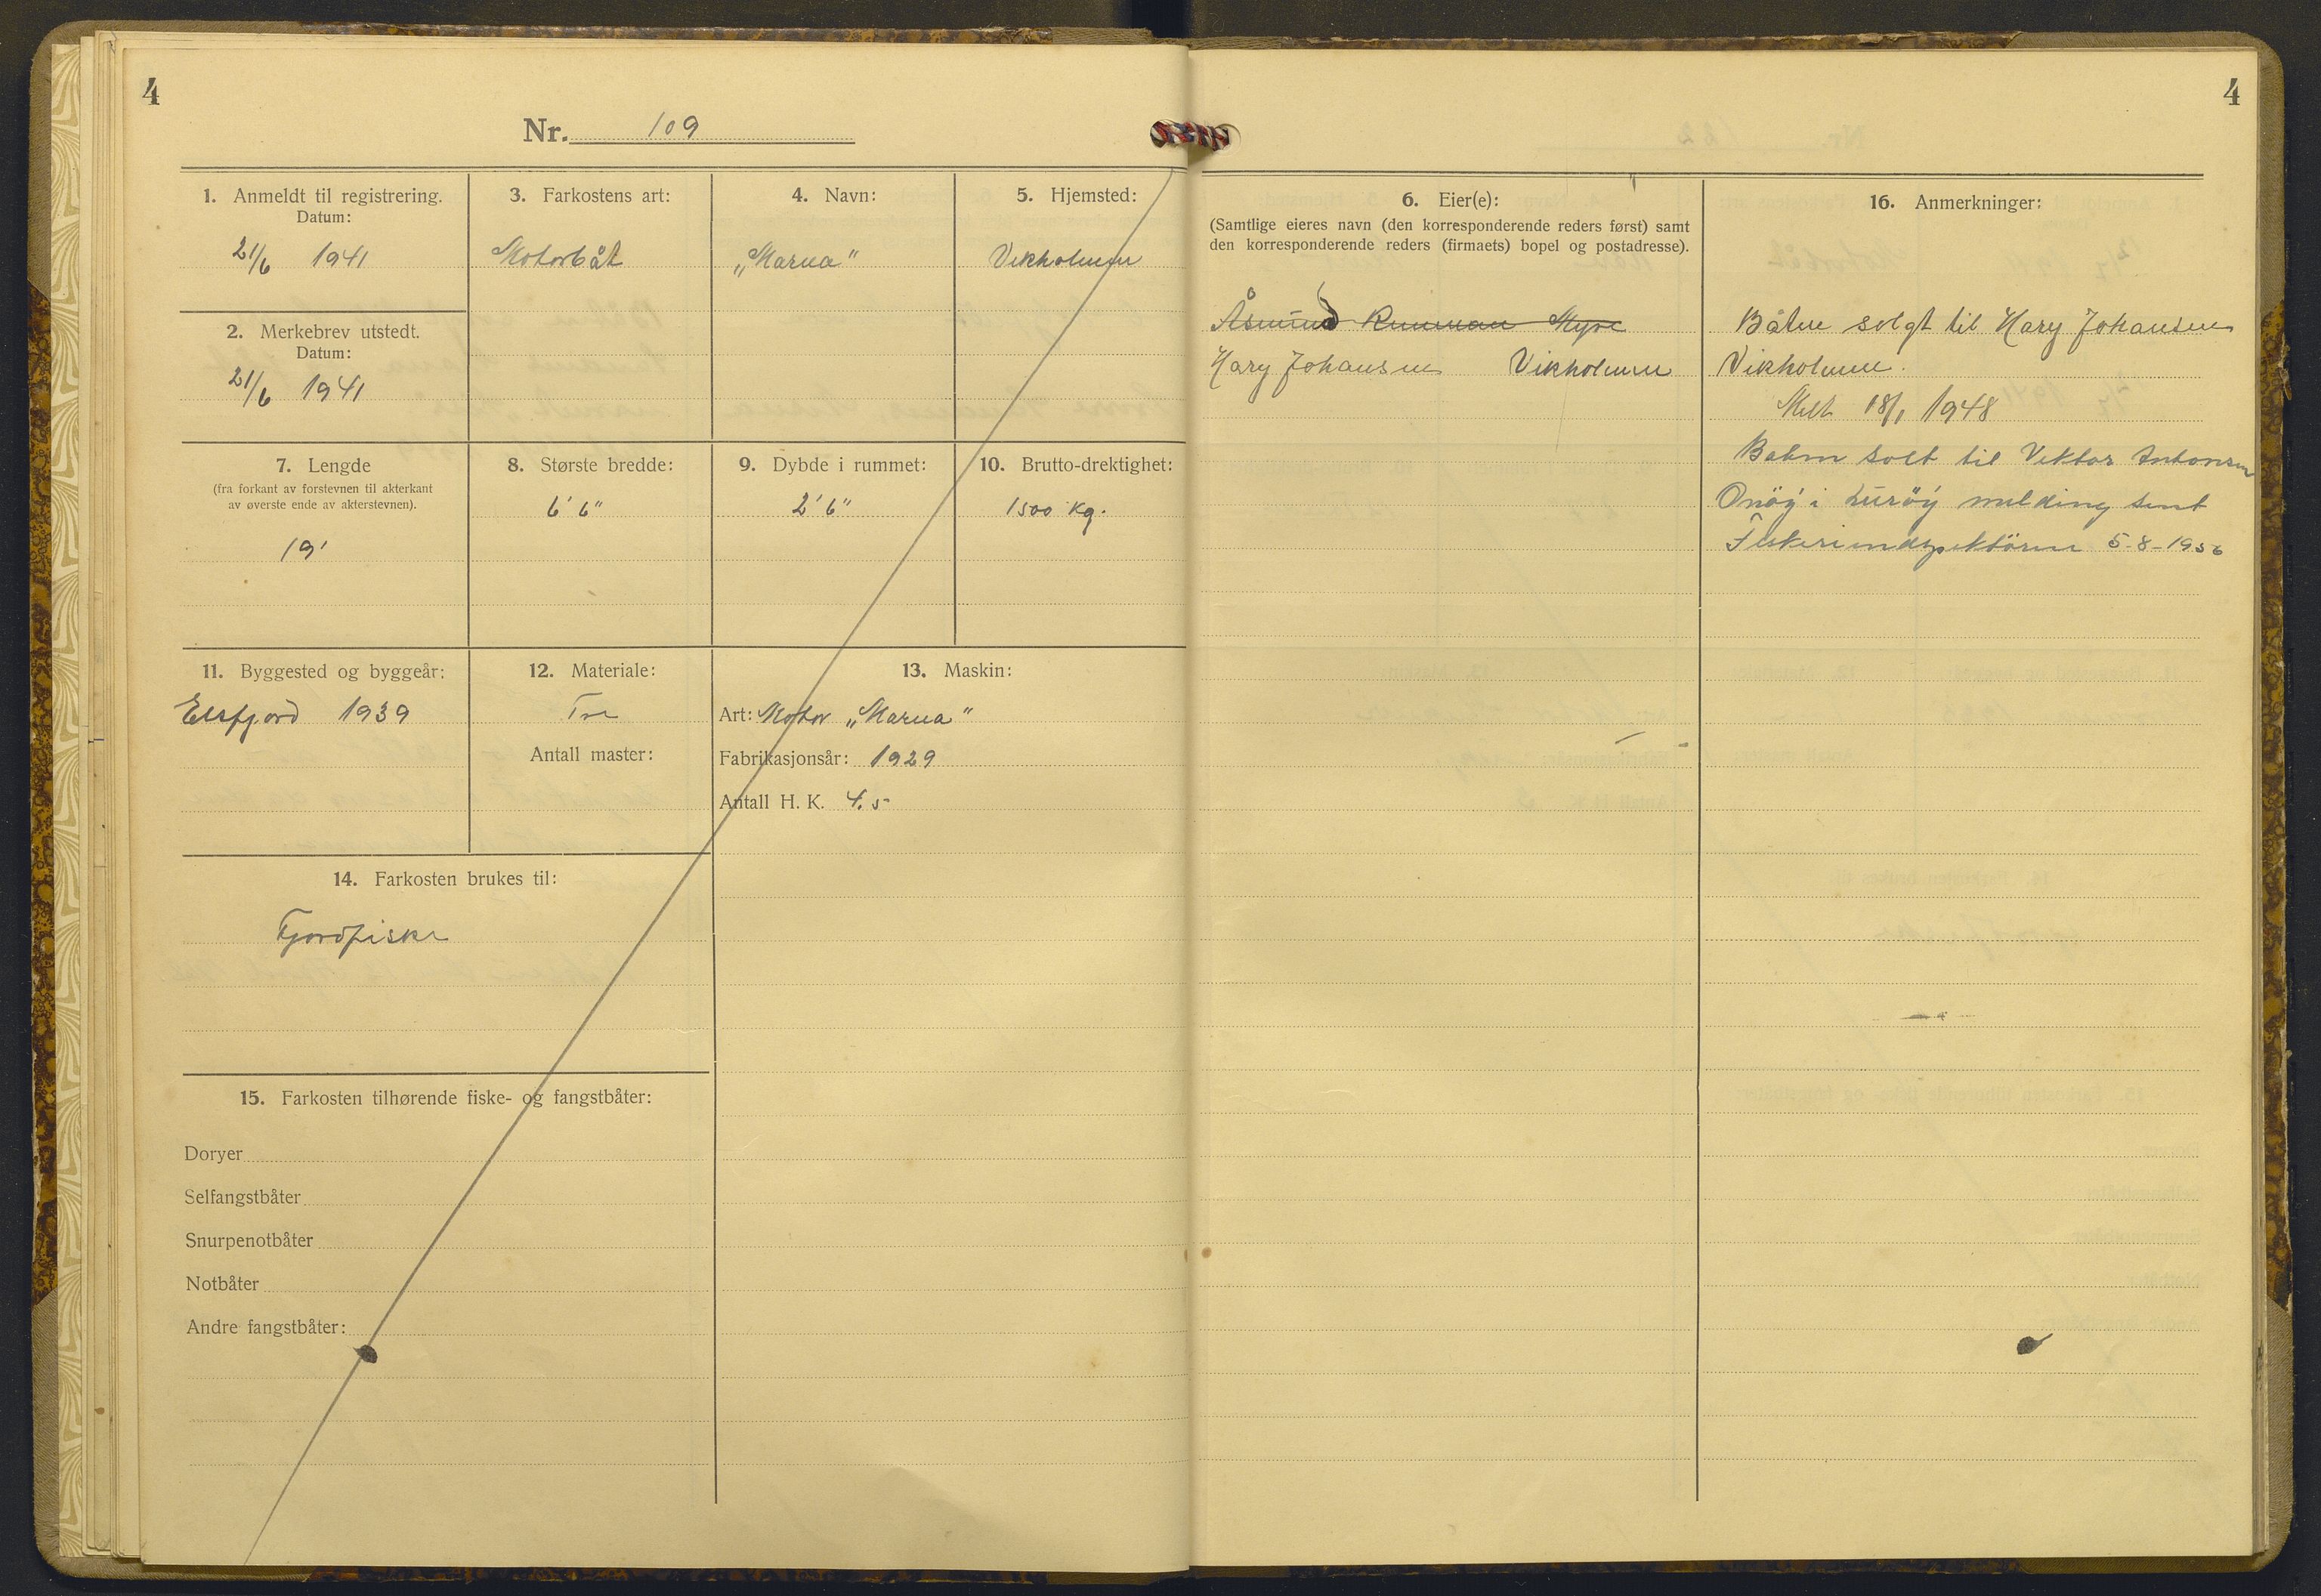 4
Nr. 109
1. Anmeldt til registrering.
Datum:
21/6 1941
2. Merkebrev utstedt.
Datum:
21/6 1941
3. Farkostens art:
Motorbåt
4. Navn:
„Marna"
5. Hjemsted:
Vikholmen
7. Lengde
(fra forkant av forstevnen til akterkant
av øverste ende av akterstevnen).
19'
8. Største bredde:
6' 6"
9. Dybde i rummet:
2' 6"
10. Brutto-drektighet:
1500 kg.
11. Byggested og byggeår:
Elsfjord 1939
12. Materiale:
Tre
Antall master:
13. Maskin:
Art: Motor „Marna"
Fabrikasjonsår: 1929
Antall H. K. 4.5
14. Farkosten brukes til:
Fjordfiske
15. Farkosten tilhørende fiske- og fangstbåter:
Doryer
Selfangstbåter
Snurpenotbåter
Notbåter
Andre fangstbåter:
4
6. Eier(e):
(Samtlige eieres navn (den korresponderende reders først) samt
den korresponderende reders (firmaets) bopel og postadresse).
Åsmund Myre
Hary Johansen Vikholmen
16. Anmerkninger:
Båten solgt til Hary Johansen
Vikholmen.
Melt 18/1 1948
Baten solt til Viktor Antonsen
Onöy i Luröy melding sent
Fiskeriindspektören 5-8-1956